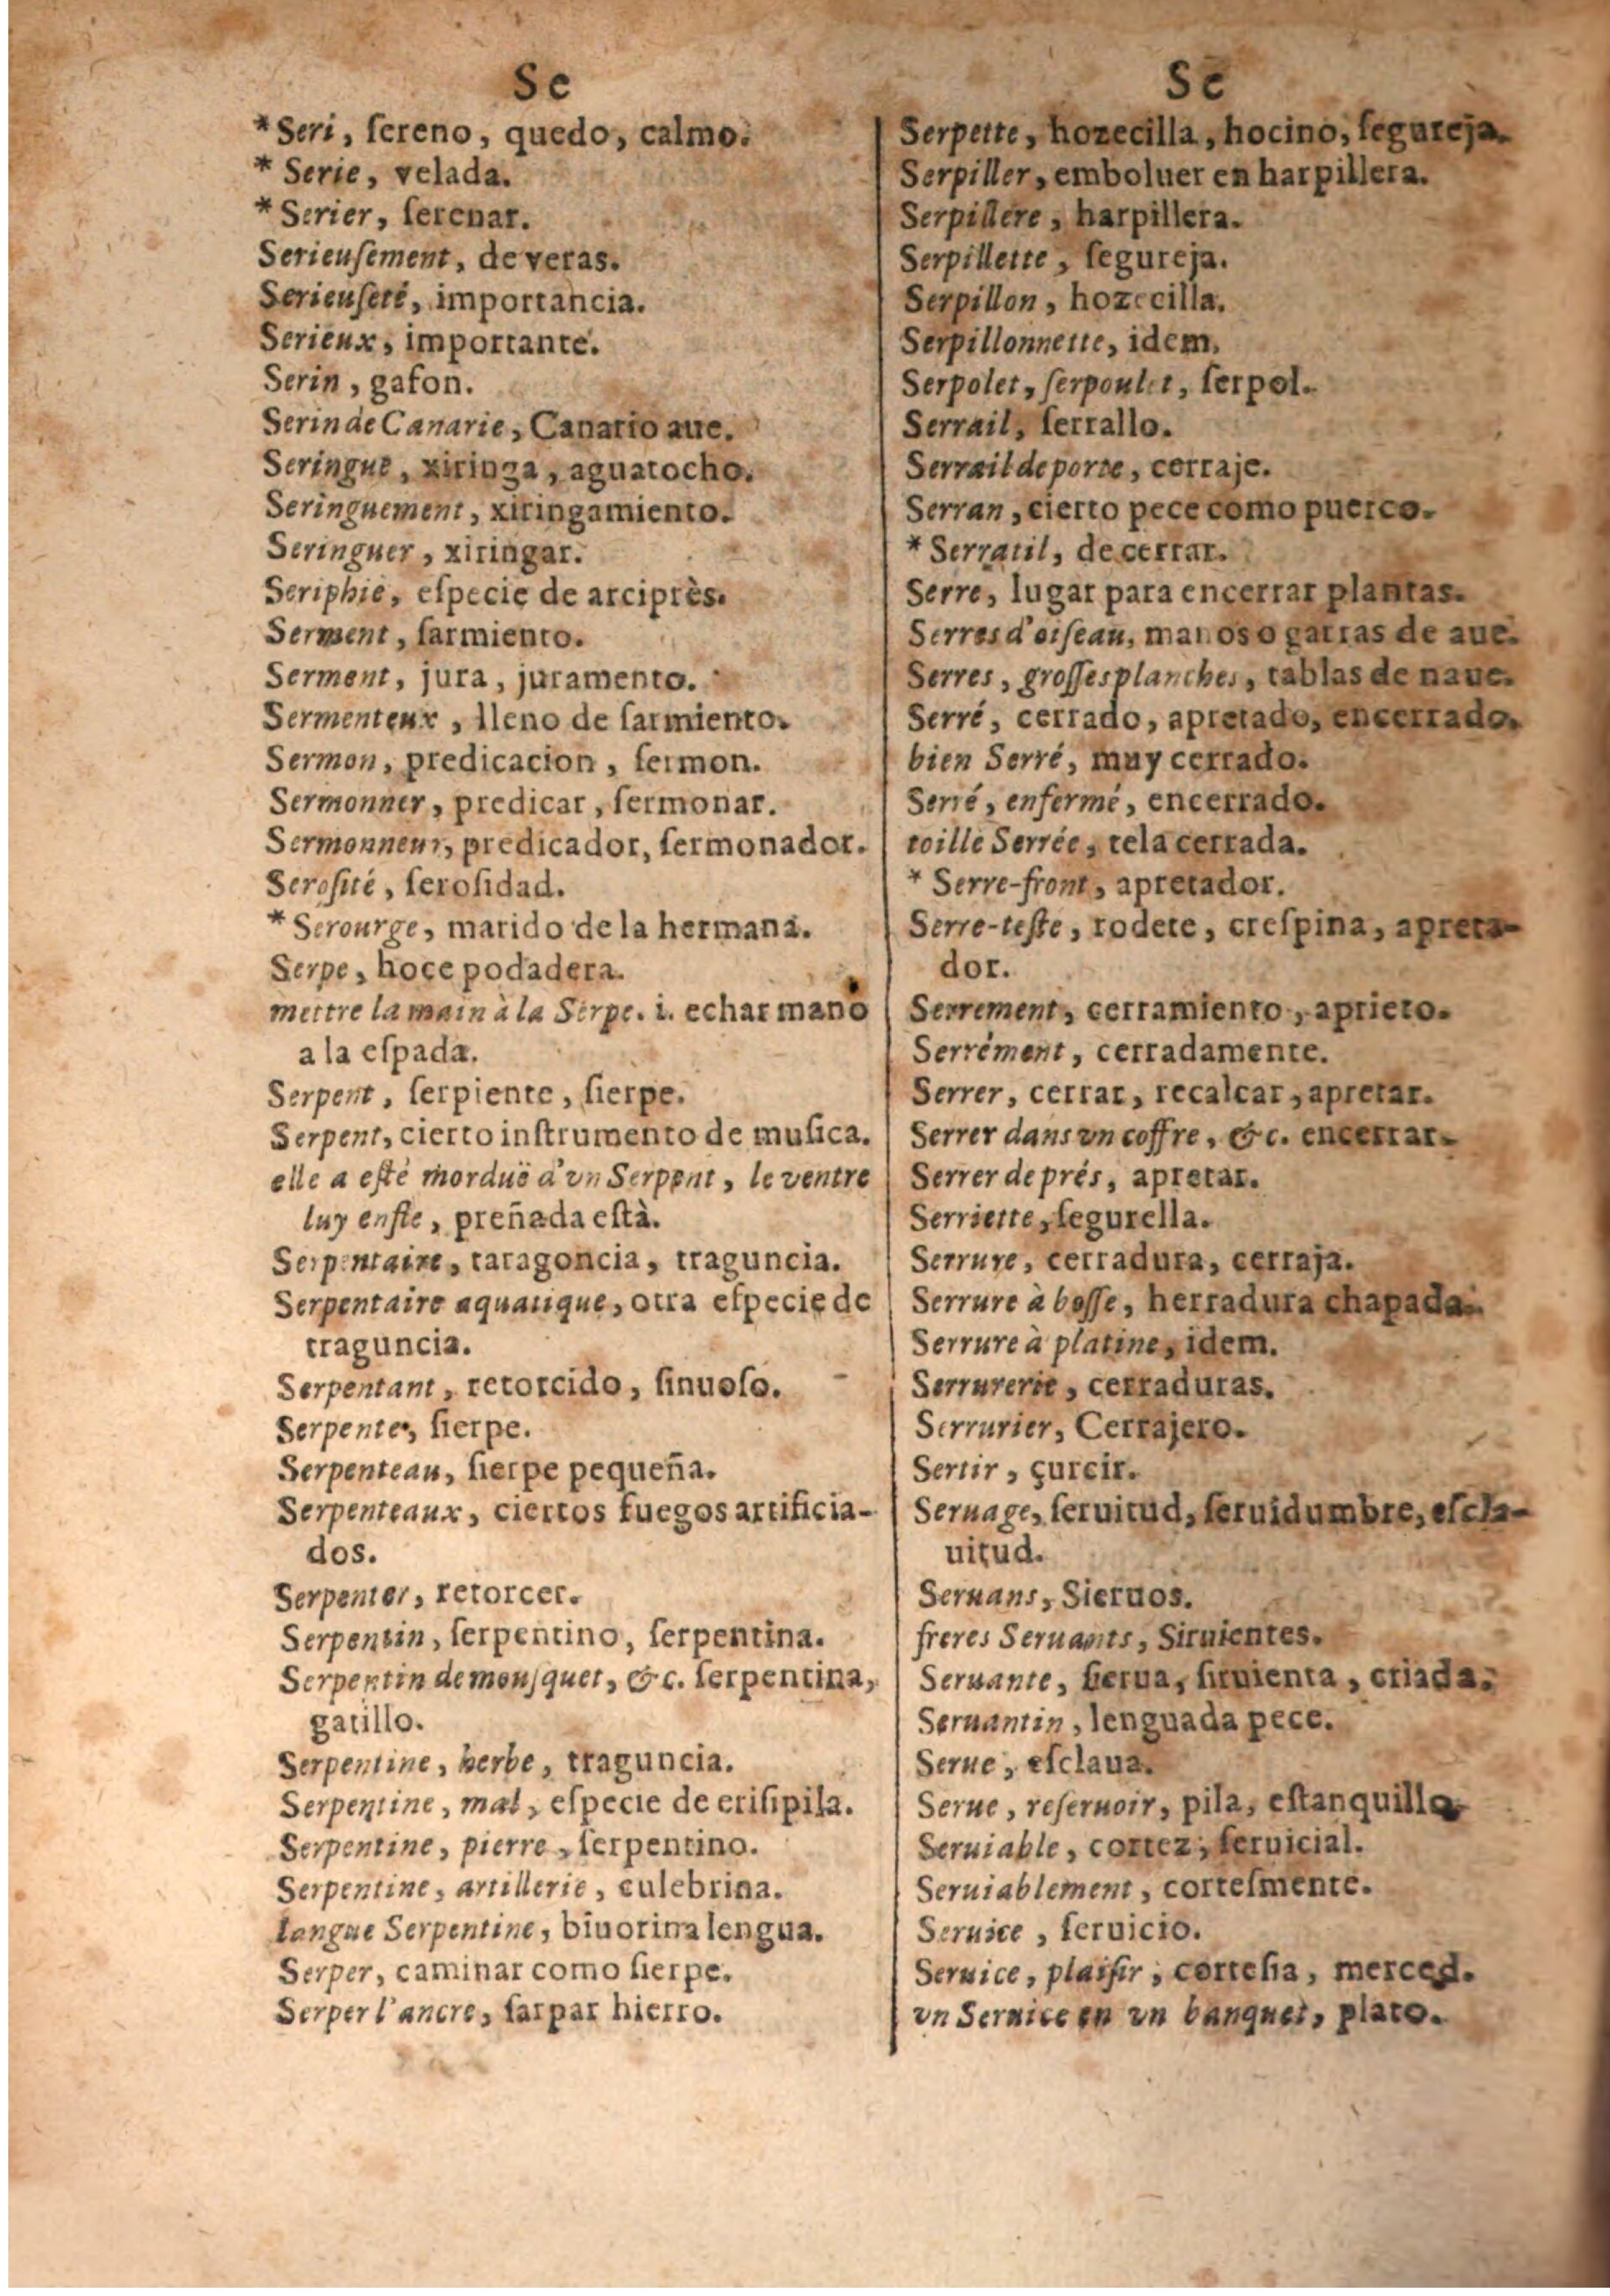 Se
*Seri, ſereno, quedo, calmo.
* Serie, velada.
* Serier, ſerenar.
Serieuſement, de veras.
Serieuſeté, importancia.
Serieux, importante.
Serin, gafon.
Serin de Canarie, Canario aue.
Seringue, xiringa, aguatocho.
Seringuement, xiringamiento.
Seringuer, xiringar.
Seriphie, eſpecie de arciprès.
Serment, ſarmiento.
Serment, jura, juramento.
Sermenteux, lleno de ſarmiento.
Sermon, predicacion, ſermon.
Sermonner, predicar, ſermonar.
Sermonneur, predicador, ſermonador.
Seroſité, ſeroſidad.
* Serourge, marido de la hermana.
Serpe, hoce podadera.
mettre la main à la Serpe. i. echar mano
a la eſpada.
Serpent, ſerpiente, ſierpe.
Serpent, cierto inſtrumento de muſica.
elle a eſté morduë d'vn Serpent, le ventre
luy enfle, preñada eſtà.
Serpentaire, taragoncia, traguncia.
Serpentaire aquatique, otra eſpecie de
traguncia.
Serpentant, retorcido, ſinuoſo.
Serpente, ſierpe.
Serpenteau, ſierpe pequeña.
Serpenteaux, ciertos fuegos artificia-
dos.
Serpenter, retorcer.
Serpentin, ſerpentino, ſerpentina.
Serpentin de mouſquet, &c. ſerpentina,
gatillo.
Serpentine, herbe, traguncia.
Serpentine, mal, eſpecie de eriſipila.
Serpentine, pierre, ſerpentino.
Serpentine, artillerie, culebrina.
langue Serpentine, biuorina lengua.
Serper, caminar como ſierpe.
Serper l'ancre, ſarpar hierro.
Se
Serpette, hozecilla, hocino, ſegureja.
Serpiller, emboluer en harpillera.
Serpillere, harpillera.
Serpillette, ſegureja.
Serpillon, hozecilla.
Serpillonnette, idem.
Serpolet, ſerpoulet, ſerpol.
Serrail, ſerrallo.
Serrail de porte, cerraje.
Serran, cierto pece como puerco.
* Serratil, de cerrar.
Serre, lugar para encerrar plantas.
Serres d'oiſeau, manos o garras de aue.
Serres, groſſes planches, tablas de naue.
Serré, cerrado, apretado, encerrado.
bien Serré, muy cerrado.
Serré, enfermé, encerrado.
toille Serrée, tela cerrada.
* Serre-front, apretador.
Serre-teſte, rodete, creſpina, apreta-
dor.
Serrement, cerramiento, aprieto.
Serrément, cerradamente.
Serrer, cerrar, recalcar, apretar.
Serrer dans vn coffre, &c. encerrar.
Serrer de prés, apretar.
Serriette, ſegurella.
Serrure, cerradura, cerraja.
Serrure à boſſe, herradura chapada.
Serrure à platine, idem.
Serrurerie, cerraduras.
Serrurier, Cerrajero.
Sertir, çurcir.
Seruage, ſeruitud, ſeruidumbre, eſcla-
uitud.
Seruans, Sieruos.
freres Seruants, Siruientes.
Seruante, ſierua, ſiruienta, criada.
Seruantin, lenguada pece.
Serue, eſclaua.
Serue, reſeruoir, pila, eſtanquillo.
Seruiable, cortez, ſeruicial.
Seruiablement, corteſmente.
Seruice, ſeruicio.
Seruice, plaiſir, corteſia, merced.
vn Seruice en vn banquet, plato.